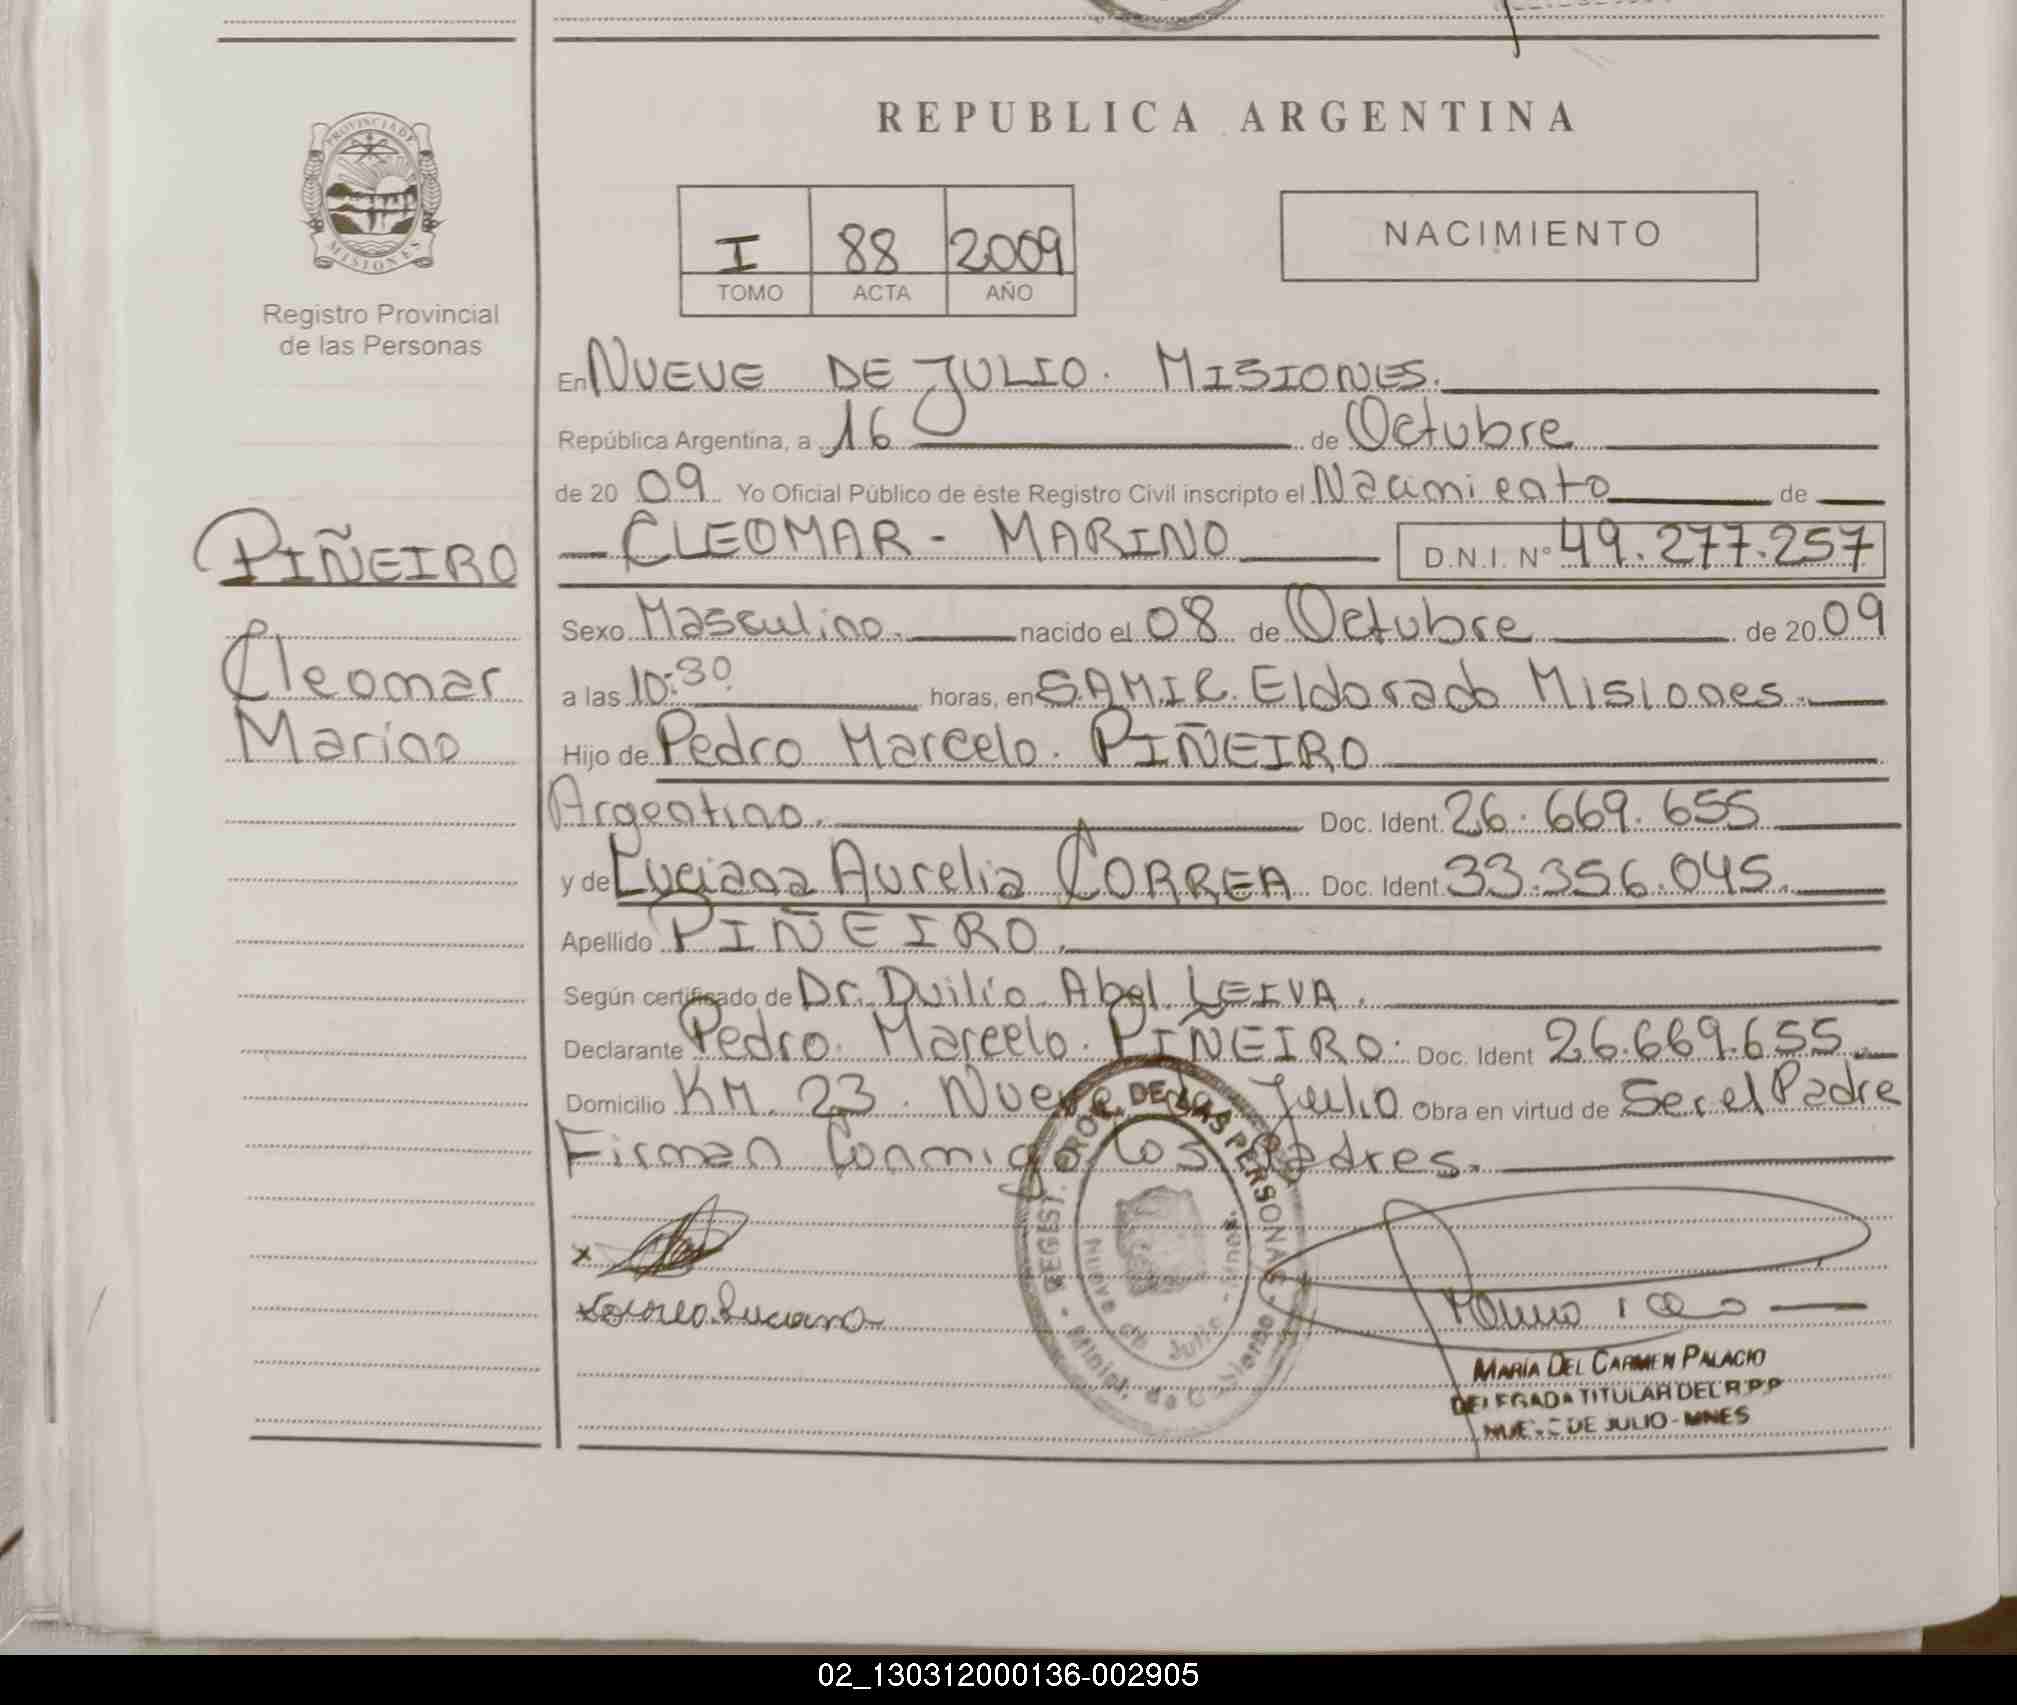 REPUBLICA ARGENTINA
PROVINCIA DE
MISIONES
Registro Provincial
de las Personas
I 88 2009
TOMO ACTA AÑO
NACIMIENTO
En NUEVE DE JULIO. MISIONES.
República Argentina, a 16 de Octubre
de 20 09 Yo Oficial Público de éste Registro Civil inscripto el Nacimiento de
PIÑEIRO
Cleomar
Marino
CLEOMAR - MARINO D.N.I. Nº 49.277.257
Sexo Masculino. nacido el 08 de Octubre de 20 09
a las 10:30 horas, en S.A.M.I.C. Eldorado Misiones.
Hijo de Pedro Marcelo. PIÑEIRO
Argentino. Doc. Ident. 26.669.655
y de Luciana Aurelia CORREA Doc. Ident. 33.356.045.
Apellido PIÑEIRO.
Según certificado de Dr. Duilio Abel LEIVA.
Declarante Pedro. Marcelo. PIÑEIRO. Doc. Ident 26.669.655
Domicilio KM. 23. Nueve de Julio Obra en virtud de Ser el Padre
Firman Conmigo los Padres.
REGIST. PROV. DE LAS PERSONAS
Nueve de Julio
- Minist. de Gobierno
x
Correa Luciana
MARÍA DEL CARMEN PALACIO
DELEGADA TITULAR DEL R.P.P
NUEVE DE JULIO - MNES
02_130312000136-002905